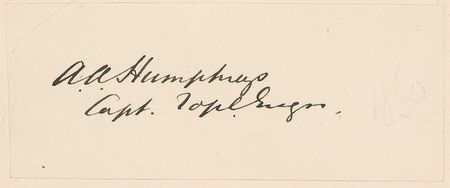 A.A. Humphreys
Capt. Topl. Engrs.